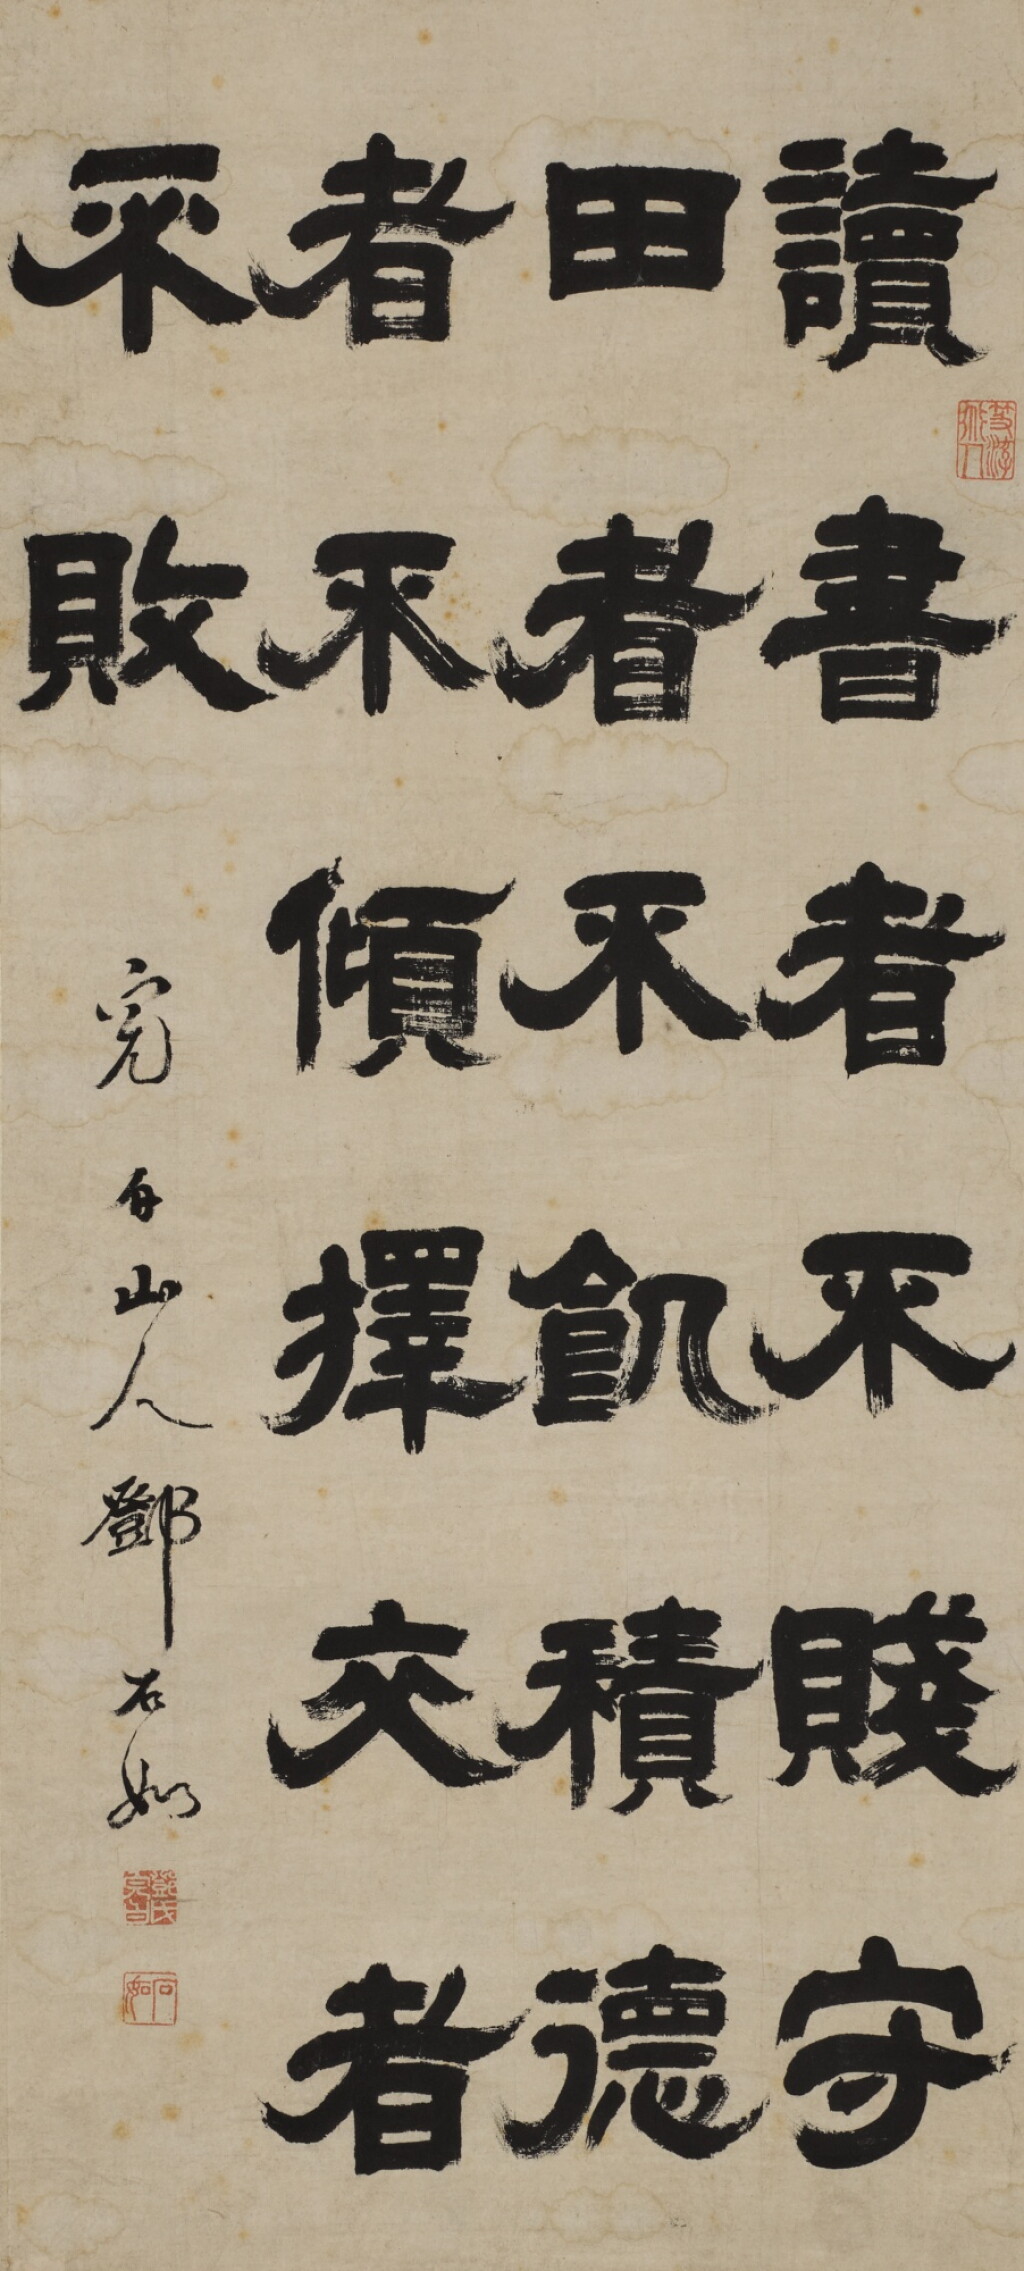 讀書者不賤守
田者不飢積德
者不傾擇交者
不敗
完白山人鄧石如
鄧氏完白
石如